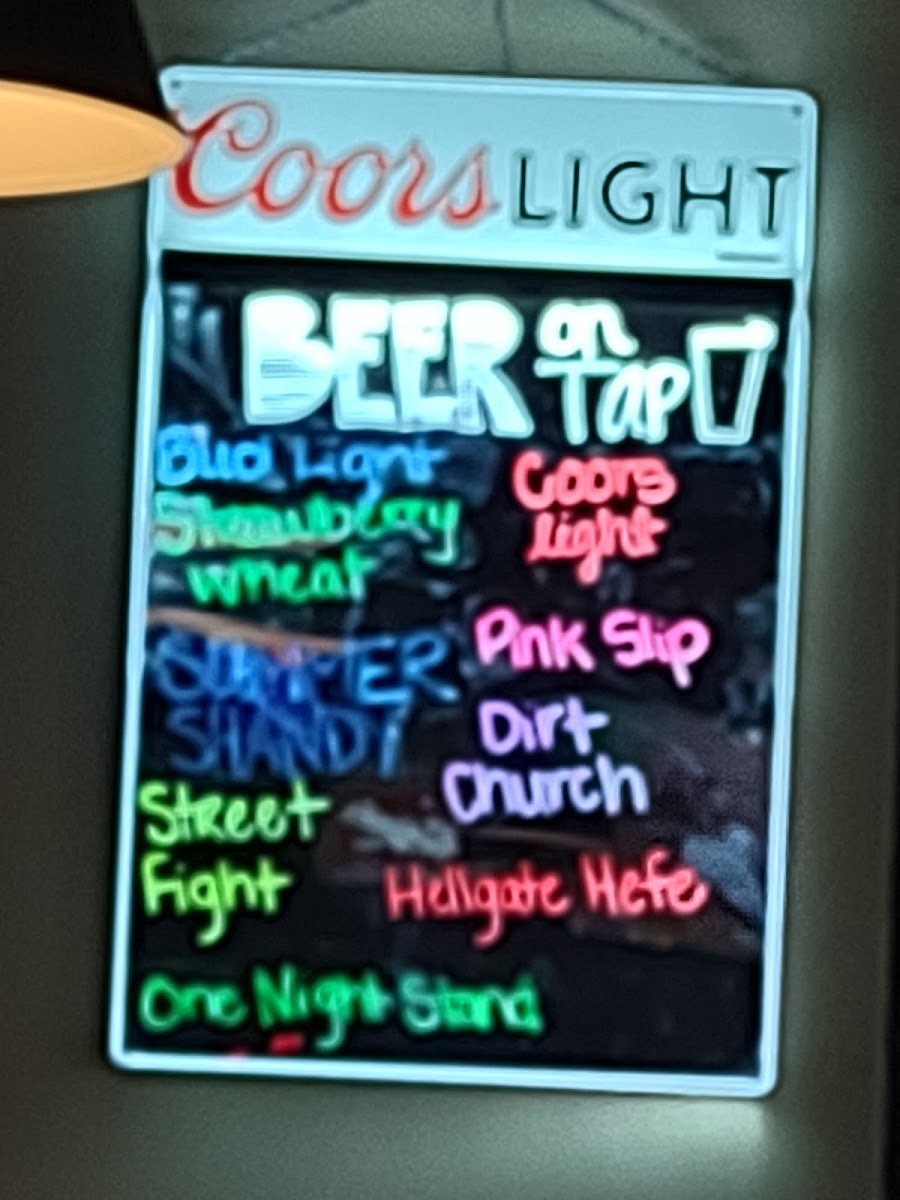 Coors LIGHT
BEER on Tap
Bud Light
Strawberry
wheat
SUMMER
SHANDY
Street
Fight
One Night Stand
Coors
light
Pink Slip
Dirt
Church
Hellgate Hefe